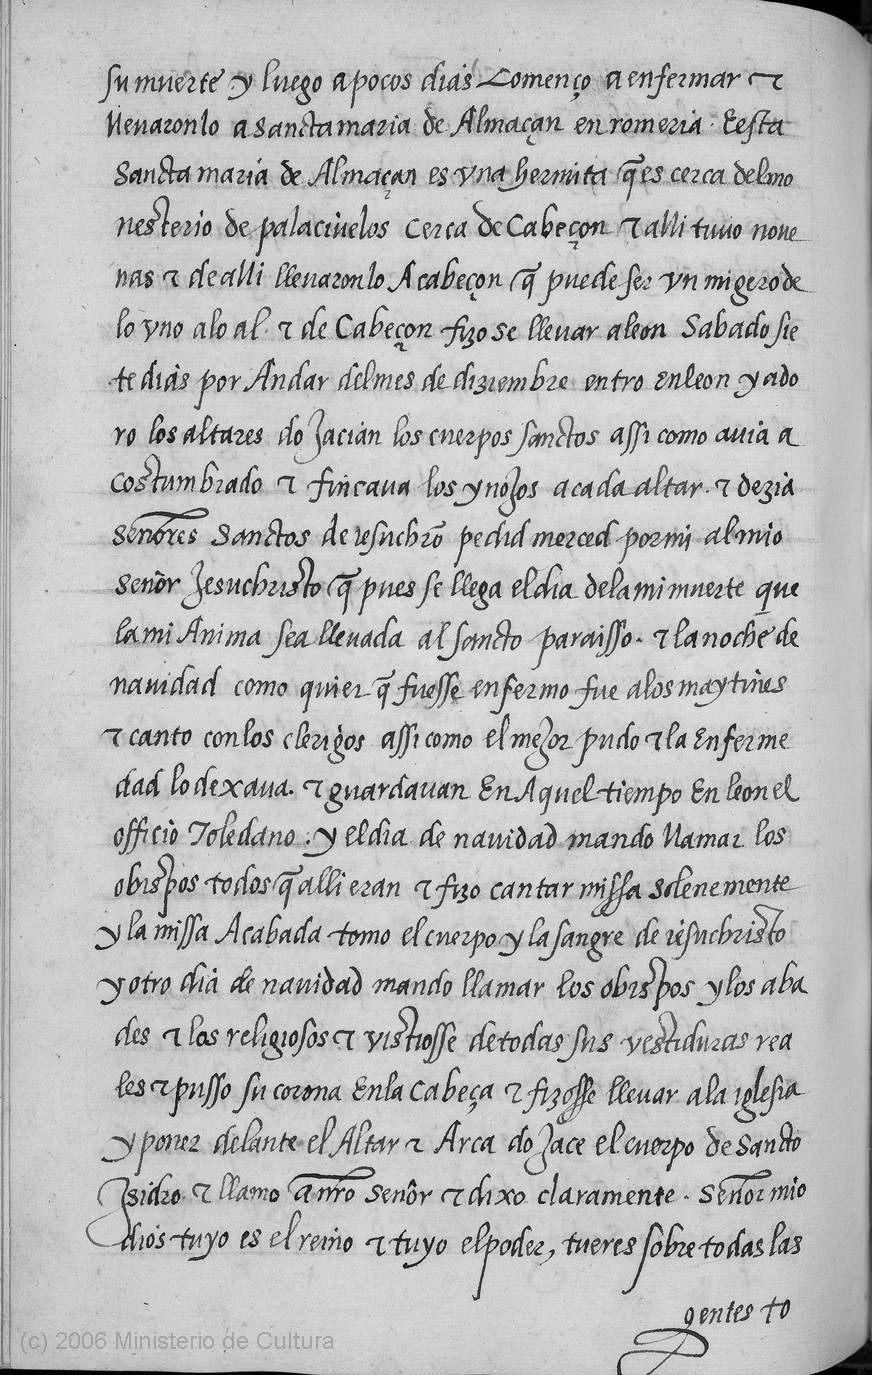 su muerte y luego a pocos dias Començo a enfermar ⁊
llevaronlo a sancta maria de Almaçan en romeria. E esta
Sancta maria de Almaçan es vna hermita q̃ es cerca del mo
nesterio de palaciuelos cerca de Cabeçon ⁊ alli tuuo noue
nas ⁊ de alli llevaronlo A cabeçon q̃ puede ser vn migero de
lo vno a lo al. ⁊ de Cabeçon fizo se llevar a leon Sabado sie
te dias por Andar del mes de diziembre entro en leon y ado
ro los altares do Jacian los cuerpos sanctos assi como auia a
costumbrado ⁊ fincaua los ynojos a cada altar. ⁊ dezia
señores Sanctos de iesuchrõ pedid merced por mi al mio
señor Jesuchristo q̃ pues se llega el dia de la mi muerte que
la mi Anima sea llevada al sancto paraisso. ⁊ la noche de
navidad como quier q̃ fuesse enfermo fue a los maytines
⁊ canto con los clerigos assi como el mejor pudo ⁊ la Enferme
dad lo dexaua. ⁊ guardauan En Aquel tiempo En leon el
officio Toledano. y el dia de navidad mando llamar los
obispos todos q̃ alli eran ⁊ fizo cantar missa solenemente
y la missa Acabada tomo el cuerpo y la sangre de iesuchristo
y otro dia de navidad mando llamar los obispos y los aba
des ⁊ los religiosos ⁊ vistiosse de todas sus vestiduras rea
les ⁊ pusso su corona En la Cabeça ⁊ fizosse llevar a la iglesia
y poner delante el Altar ⁊ Arca do Jace el cuerpo de Sancto
Isidro. ⁊ llamo a nrõ señor ⁊ dixo claramente. Señor mio
dios tuyo es el reino ⁊ tuyo el poder, tu eres sobre todas las
gentes to
(c) 2006 Ministerio de Cultura